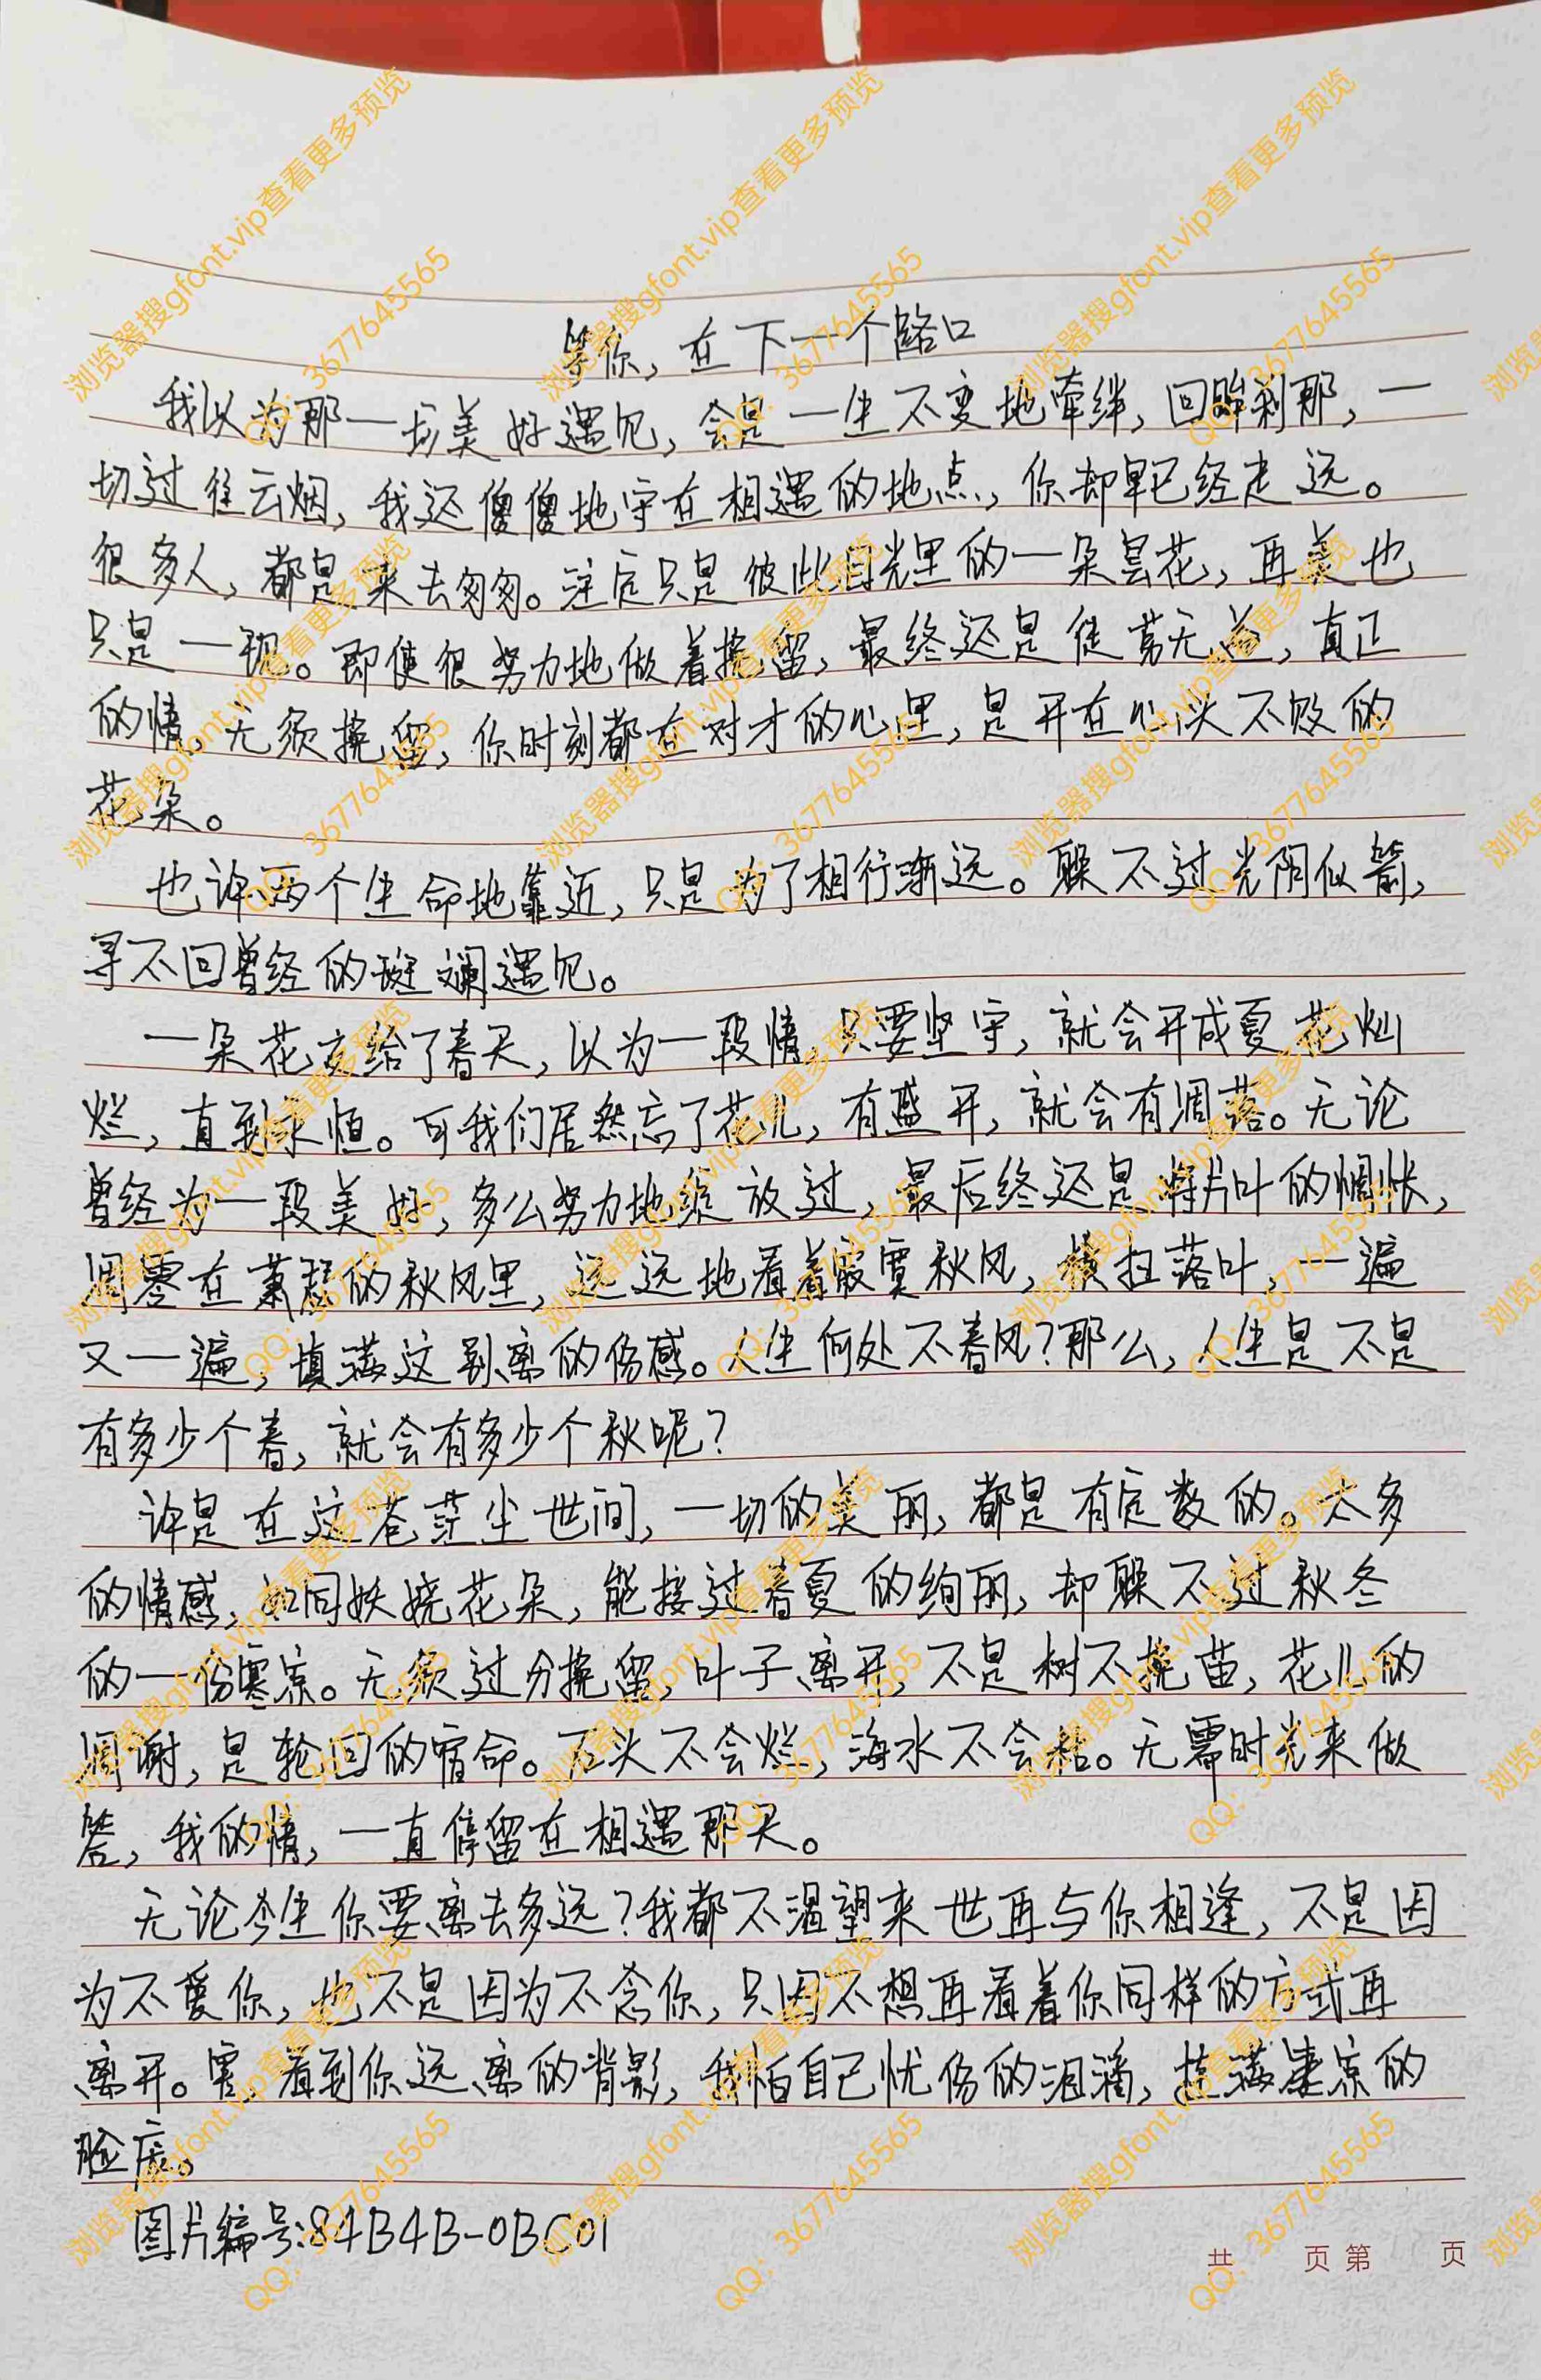 等你，在下一个路口
我以为那一场美好遇见，会是一生不变地牵绊，回眸刹那，一
切过往云烟，我还傻傻地守在相遇的地点，你却早已经走远。
很多人，都是来去匆匆。注定只是彼此目光里的一朵昙花，再美也
只是一现。即使很努力地做着挽留，最终还是徒劳无益，真正
的情，无须挽留，你时刻都在对才的心里，是开在心头不败的
花朵。
也许两个生命地靠近，只是为了相行渐远。躲不过光阴似箭，
寻不回曾经的斑斓遇见。
一朵花交给了春天，以为一段情，只要坚守，就会开成夏花灿
烂，直到永恒。可我们居然忘了花儿，有盛开，就会有凋落。无论
曾经为一段美好，多么努力地绽放过，最后终还是将片叶的惆怅，
凋零在萧瑟的秋风里，远远地看着寂寞秋风，横扫落叶，一遍
又一遍，填满这别离的伤感。人生何处不春风？那么，人生是不是
有多少个春，就会有多少个秋呢？
许是在这苍茫尘世间，一切的美丽，都是有定数的。太多
的情感，如同妖娆花朵，能接过春夏的绚丽，却躲不过秋冬
的一份寒凉。无须过分挽留，叶子离开，不是树不挽苗，花儿的
凋谢，是轮回的宿命。石头不会烂，海水不会枯。无需时光来做
答，我的情，一直停留在相遇那天。
无论今生你要离去多远？我都不渴望来世再与你相逢，不是因
为不爱你，也不是因为不念你，只因不想再看着你同样的方式再
离开。害，看到你远离的背影，我怕自己忧伤的泪潘，挂满凄凉的
脸庞。
图片编号：84B4B-0BC01
共 页 第 页
浏览器搜gfont.vip查看更多预览
QQ：3677645565